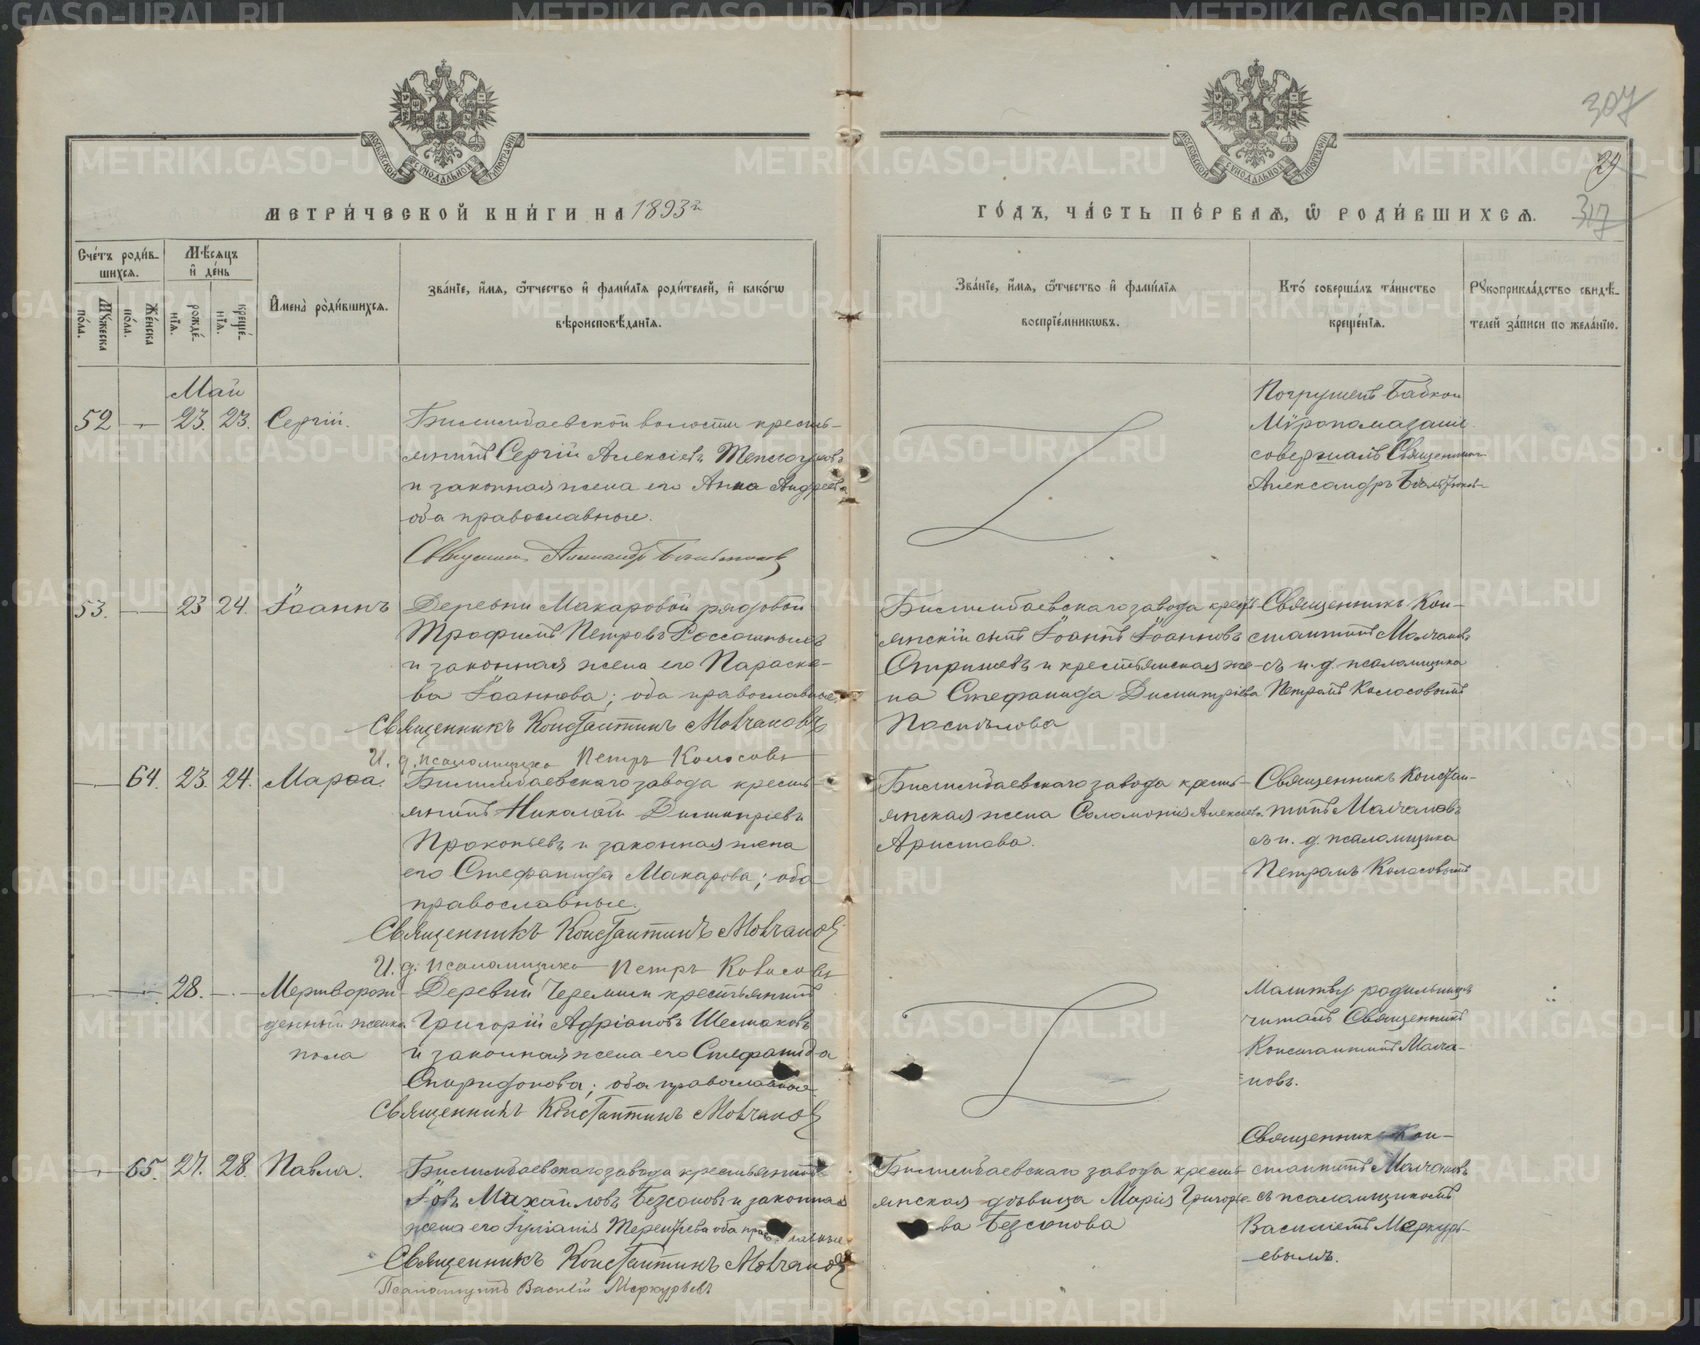 307
29
317
МОСКОВСКОЙ СѴНОДАЛЬНОЙ ТИПОГРАФІИ
МОСКОВСКОЙ СѴНОДАЛЬНОЙ ТИПОГРАФІИ
МЕТРИ́ЧЕСКОЙ КНИ́ГИ НА 1893й
ГО́ДЪ, ЧА́СТЬ ПЕ́РВАЯ, Ѡ РОДИ́ВШИХСЯ.
Сче́тъ роди́в-
шихся.
Мѣ́сяцъ
и҆ де́нь
Мꙋ́жеска
по́ла.
Же́нска
по́ла.
рожде́-
нїя.
креще́-
нїя.
И҆мена̀ роди́вшихся.
Зва́нїе, и҆́мя, ѻ҆́тчество и҆ фами́лїя роди́телей, и҆ како́гѡ
вѣроисповѣ́данїя.
Зва́нїе, и҆́мя, ѻ҆́тчество и҆ фами́лїя
воспрїе́мникѡвъ.
Кто̀ соверша́лъ та́инство
креще́нїя.
Рꙋкоприкла́дство свидѣ́-
телей за́писи по жела́нїю.
Май
52 — 23. 23. Сергій.
Билимбаевской волости кресть-
янинъ Сергій Алексіевъ
и законная жена его Анна Андреева
оба православные.
Священникъ Александръ
Погружен Бабкой
Мѵропомазаніе
совершалъ Священникъ
Александръ
53. — 23 24. Іоаннъ
Деревни Макаровой рядовой
Трофимъ Петровъ
и законная жена его Параске-
ва Іоаннова; оба православные.
Священникъ Константинъ Молчановъ
И. д. псаломщика Петръ Колосовъ
Билимбаевскаго завода кресть-
янскій сынъ Іоаннъ Іоанновъ
и крестьянская же-
на Стефанида Димитріева
Поспѣлова
Священникъ Кон-
стантинъ Молчановъ
съ и. д. псаломщика
Петромъ Колосовымъ
— 64. 23. 24. Марѳа.
Билимбаевскаго завода кресть-
янинъ Николай Димитріевъ
Прокопьевъ и законная жена
его Стефанида Макарова; оба
православные.
Священникъ Константинъ Молчановъ
И. д. псаломщика Петръ Колосовъ
Билимбаевскаго завода кресть-
янская жена Соломонія Алексіева
Аристова.
Священникъ Констан-
тинъ Молчановъ
съ и. д. псаломщика
Петромъ Колосовымъ
— — 28. — Мертворож-
денный женска
пола
Деревни Черемши крестьянинъ
Григорій Адріановъ Шелтаковъ
и законная жена его Стефанида
Спиридонова; оба православные
Священникъ Константинъ Молчановъ
Молитву родильницѣ
читалъ Священникъ
Константинъ Молча-
новъ.
— 65. 27. 28. Павла.
Билимбаевскаго завода крестьянинъ
Іовъ Михайловъ Безсоновъ и законная
жена его Іуліанія Терентіева оба
Священникъ Константинъ Молчановъ
Псаломщикъ Василій Меркурьевъ
Билимбаевскаго завода кресть-
янская дѣвица Марія Григорье-
ва Безсонова
Священникъ Кон-
стантинъ Молчановъ
съ псаломщикомъ
Василіемъ Меркурь-
евымъ.
METRIKI.GASO-URAL.RU